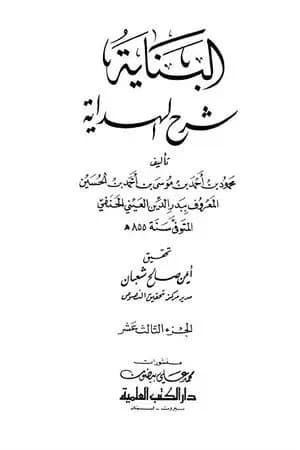 البناية
شرح الهداية
تأليف
محمود بن أحمد بن موسى بن أحمد بن الحسين
المعروف ببدر الدين العيني الحنفي
المتوفى سنة ٨٥٥ ه
تحقيق
أيمن صالح شعبان
مدير مركز تحقيق النصوص
الجزء الثالث عشر
منشورات
محمد علي بيضون
دار الكتب العلمية
بيروت - لبنان